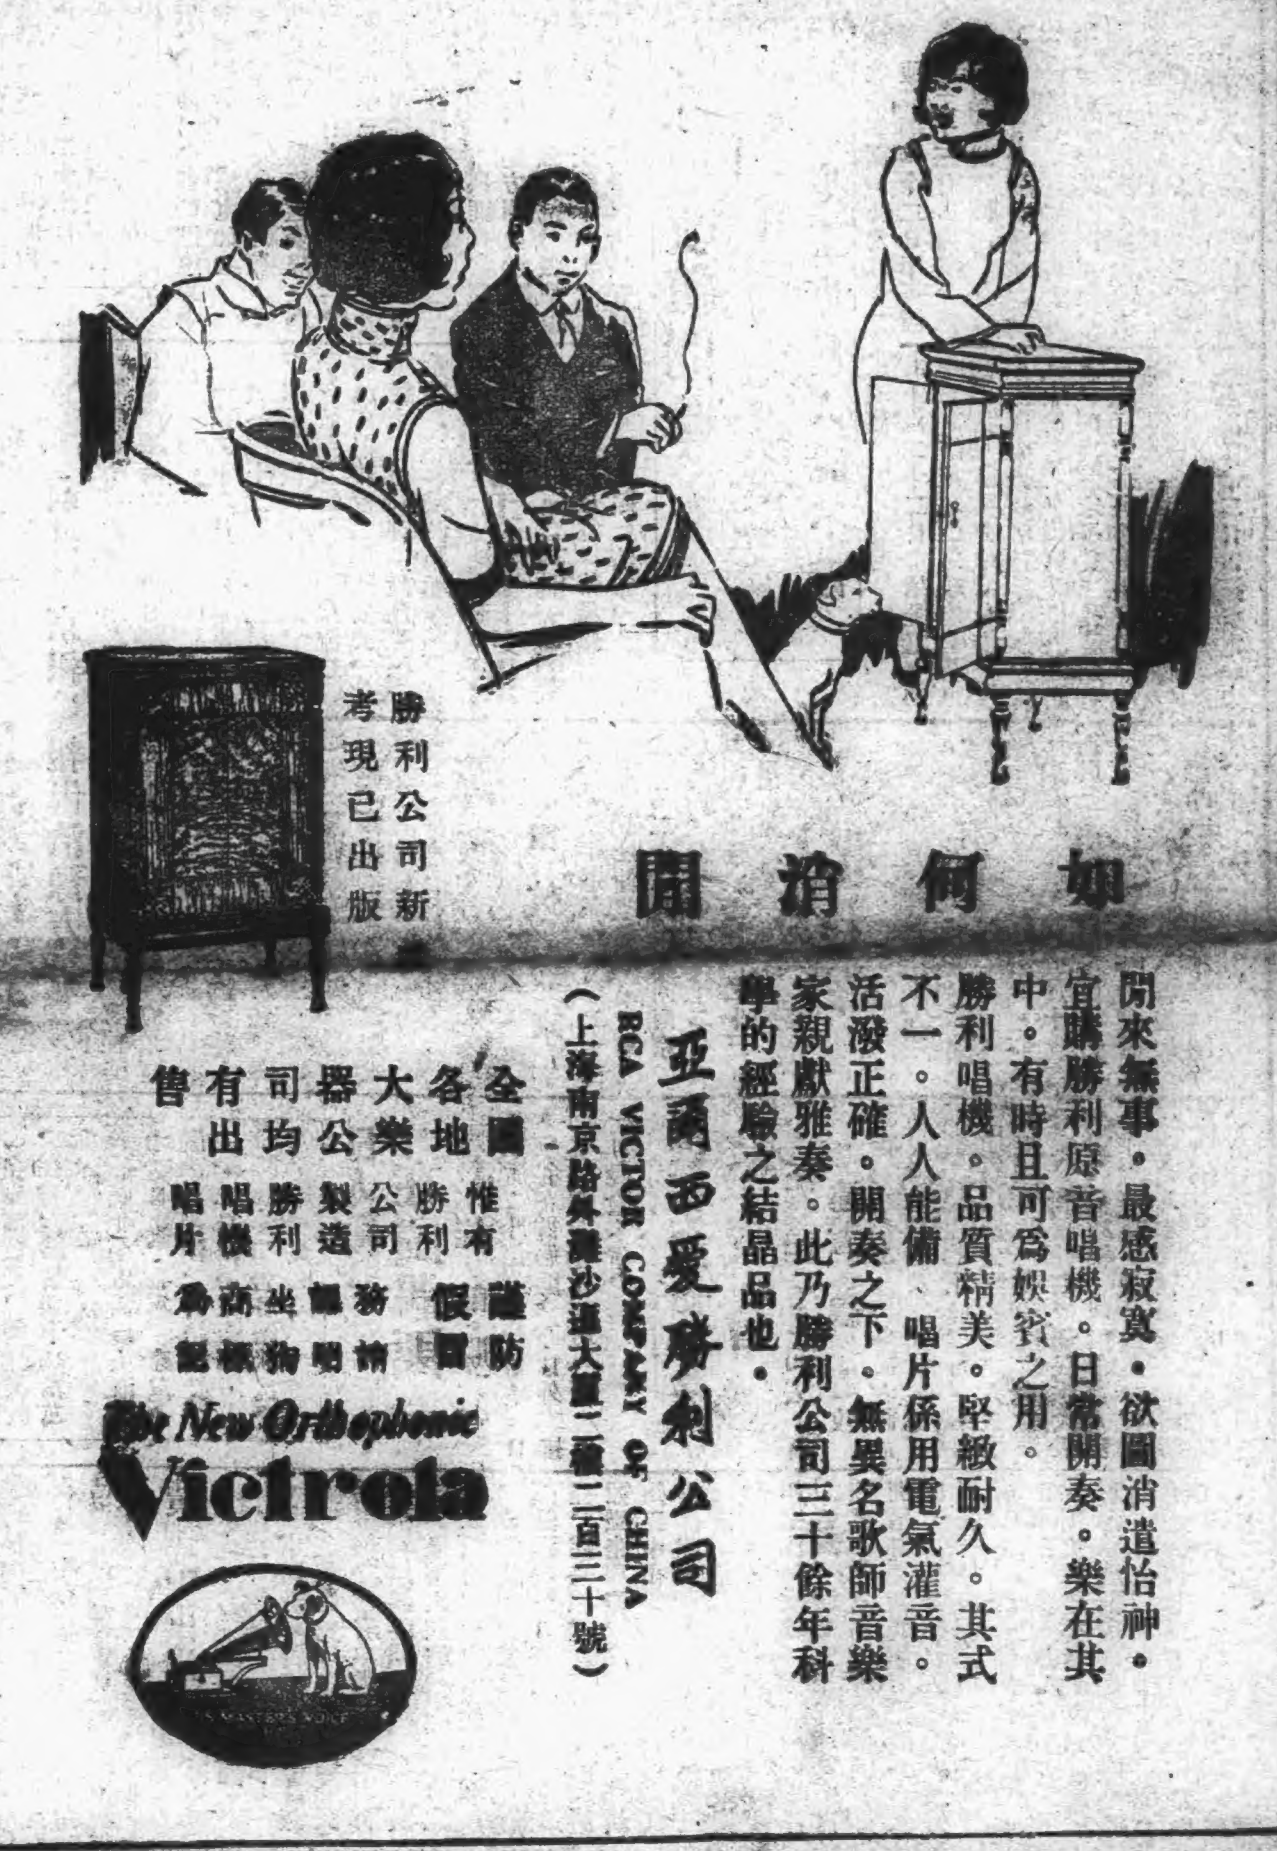 勝利公司新
考現已出版
如何消閒
閒來無事。最感寂寞。欲圖消遣怡神。
宜購勝利原音唱機。日常開奏。樂在其
中。有時且可為娛賓之用。
勝利唱機。品質精美。堅緻耐久。其式
不一。人人能備、唱片係用電氣灌音。
活潑正確。開奏之下。無異名歌師音樂
家親獻雅奏。此乃勝利公司三十餘年科
學的經驗之結晶品也。
亞爾西愛勝利公司
RCA VICTOR COMPANY OF CHINA
(上海南京路外灘沙遜大廈二樓二百三十號)
全國
各地
大樂
器公
司均
有出
售
惟有
勝利
公司
製造
勝利
唱機
唱片
謹防
假冒
務請
認明
坐狗
商標
為記
The New Orthophonic
Victrola
HIS MASTER'S VOICE